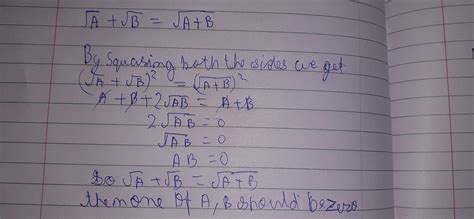 √A + √B = √A+B
By Squasing both the sides we get
(√A + √B)² = (√A+B)²
A + B + 2√AB = A + B
2√AB = 0
√AB = 0
AB = 0
So √A + √B = √A+B
then one of A, B should be zero